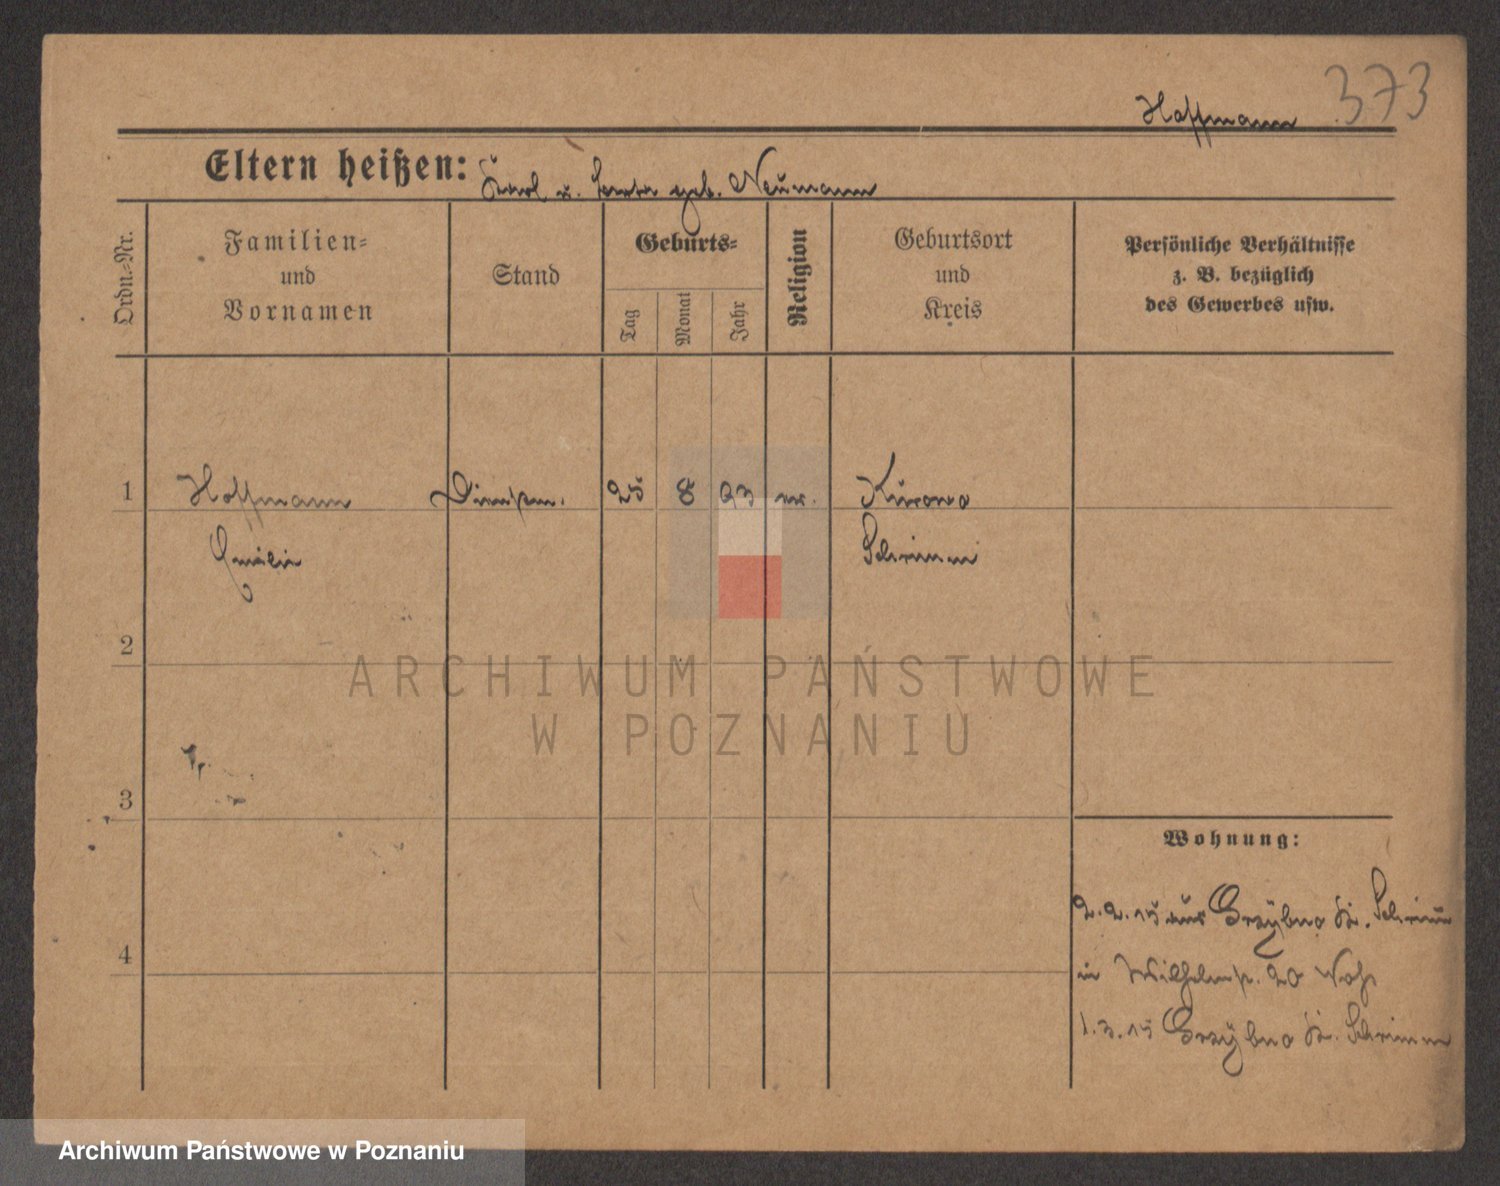 Hoffmann 373
Eltern heißen: Karl u. geb. Neumann
Ordn.-Nr.
Familien-
und
Vornamen
Stand
Geburts-
Tag
Monat
Jahr
Religion
Geburtsort
und
Kreis
Persönliche Verhältnisse
z. B. bezüglich
des Gewerbes usw.
1 Hoffmann Dienstm. 25 8 93 ev. Kurowo
Emilie Schrimm
2
3
4
Wohnung:
2.2.15 aus Grzybno Kr. Schrimm
in Wilhelmstr. 20
1.3.15 Grzybno Kr. Schrimm
ARCHIWUM PAŃSTWOWE
W POZNANIU
Archiwum Państwowe w Poznaniu